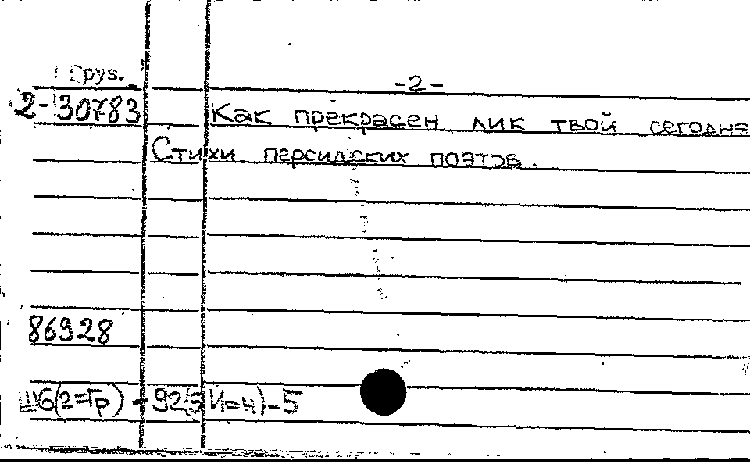 Груз. -2-
2-30783 Как прекрасен лик твой сегодня
Стихи персидских поэтов.
86928
Ш6(2=Гр) - 92(5И=н)-5